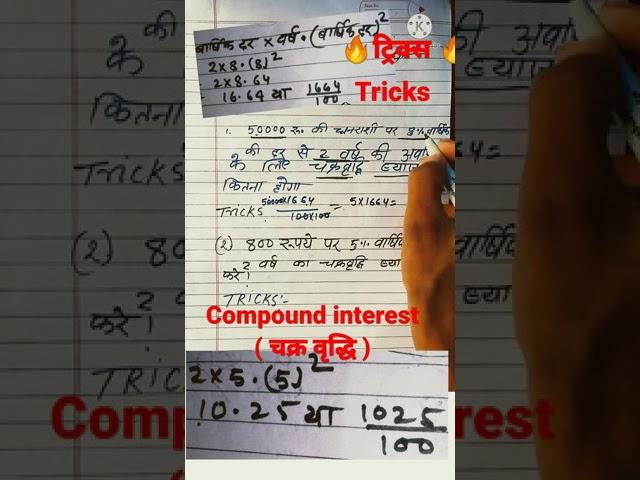 वार्षिक दर × वर्ष • (वार्षिक दर)²
2×8 • (8)²
2×8 • 64
16.64 या 1664/100
🔥ट्रिक्स🔥
Tricks
1. 50000 रु० की धनराशी पर 8% वार्षिक
की दर से 2 वर्ष की
के लिए चक्रवृद्धि ब्याज
कितना होगा
Tricks 50000×1664/100×100 = 5×1664=
(2) 800 रूपये पर 5% वार्षि
2 वर्ष का चक्रवृद्धि ब्या
करे !
TRICKS:-
Compound interest
( चक्र वृद्धि )
2×5 • (5)²
10.25 या 1025/100